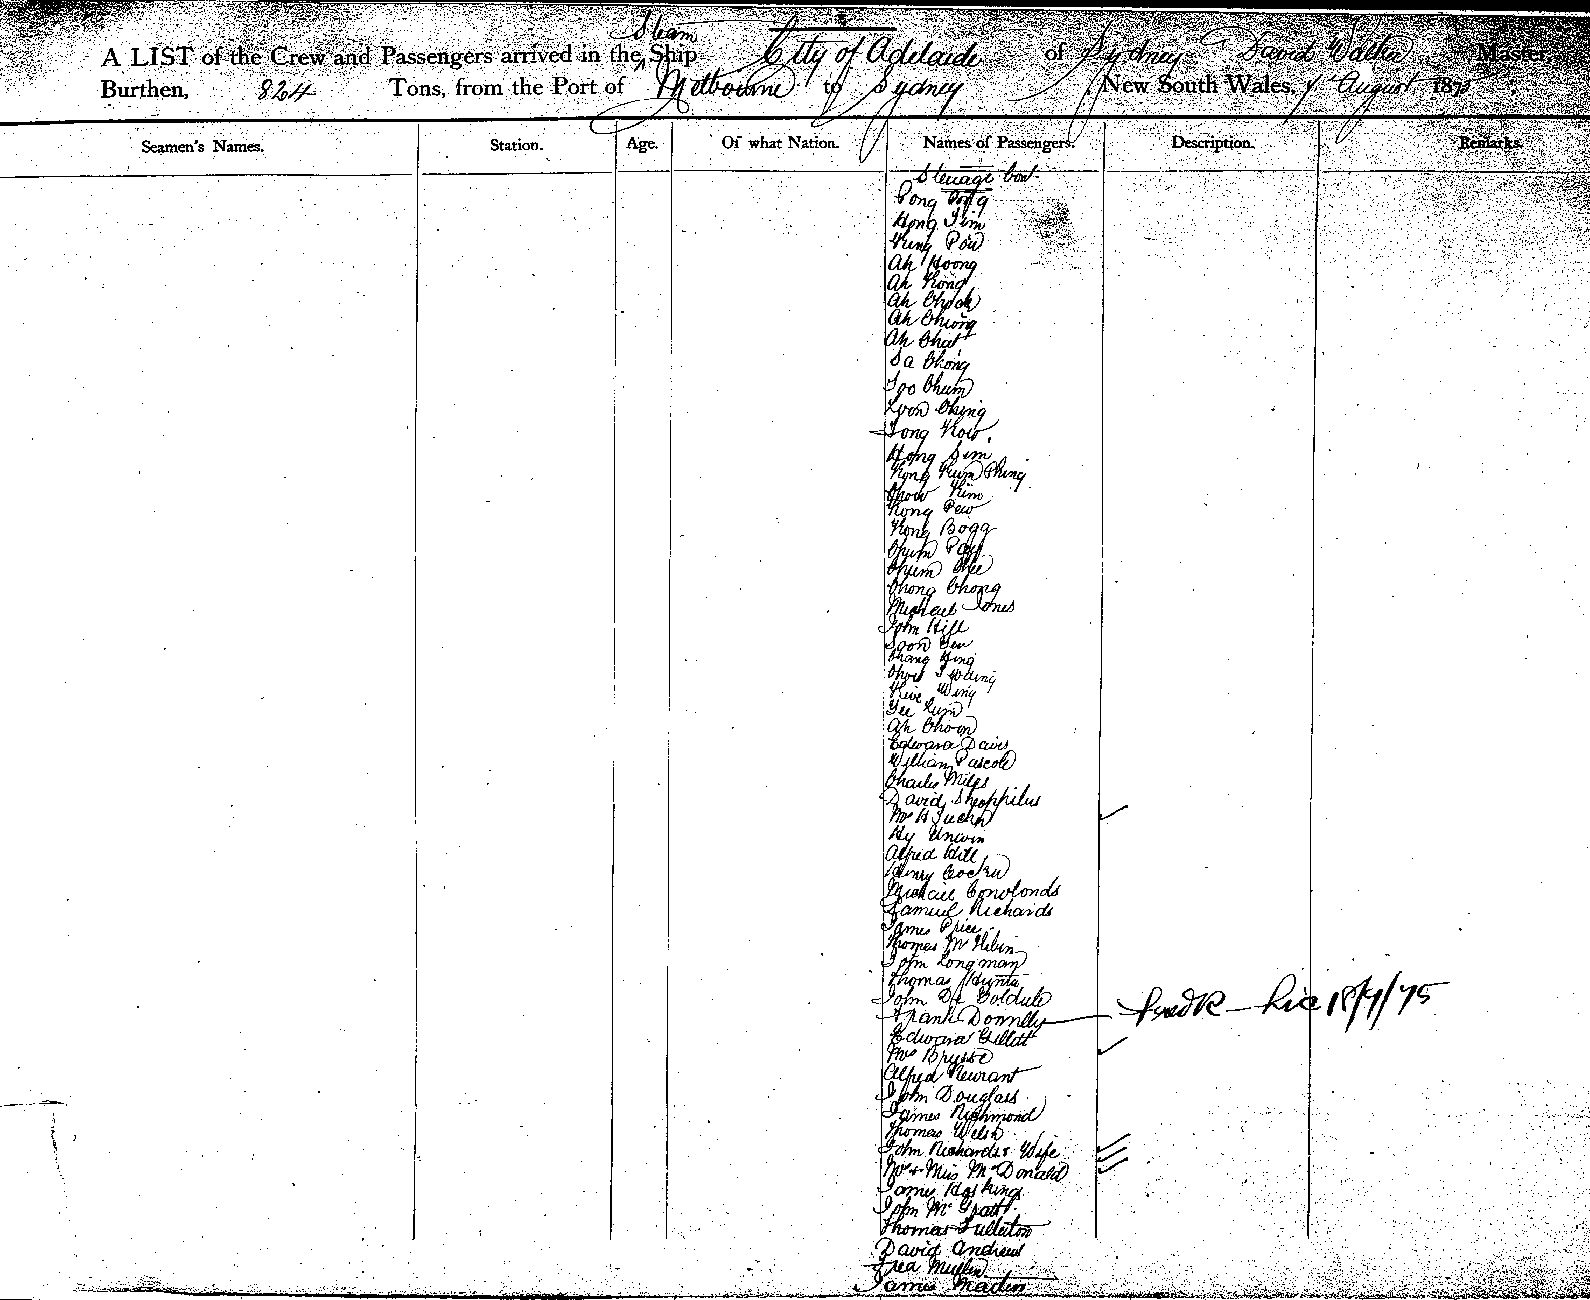 Steam
A LIST of the Crew and Passengers arrived in the Ship City of Adelaide of Sydney David Walker Master
Burthen, 824 Tons, from the Port of Melbourne to Sydney New South Wales, August 187
Seamen's Names. Station. Age. Of what Nation. Names of Passengers. Description. Remarks.
Steerage Cont
Pong
Hong Sim
Kung Pow
Ah Hoong
Ah Kong
Ah Chock
Ah Chiong
Ah Chat
Sa Chong
Loo Chum
Loon Ching
Tong Kow
Hong Sim
Kong Kum Phing
Chow Kim
Kong Pew
Kong Bogg
Chum
Chum
Chong Chong
Michael Jones
John Hill
Soon
Chang
Chow
Kive Wing
Yee Lum
Ah Choon
Edward Davis
William Pascoe
Charles Miles
David
Mrs
Hy Unwin
Alfred Hill
Henry Cocker
Michael
Samuel Richards
James Price
Thomas
John Longman
Thomas Hunter
John De
Frank Donnelly Fredk 18/7/75
Edward Gillett
Mrs Brysse
Alfred
John Douglass
James Richmond
Thomas Welsh
John Richards & Wife
Mr & Miss McDonald
James Hoskings
John McGrath
Thomas Fullerton
David Andrews
Fred Mullen
James Martin